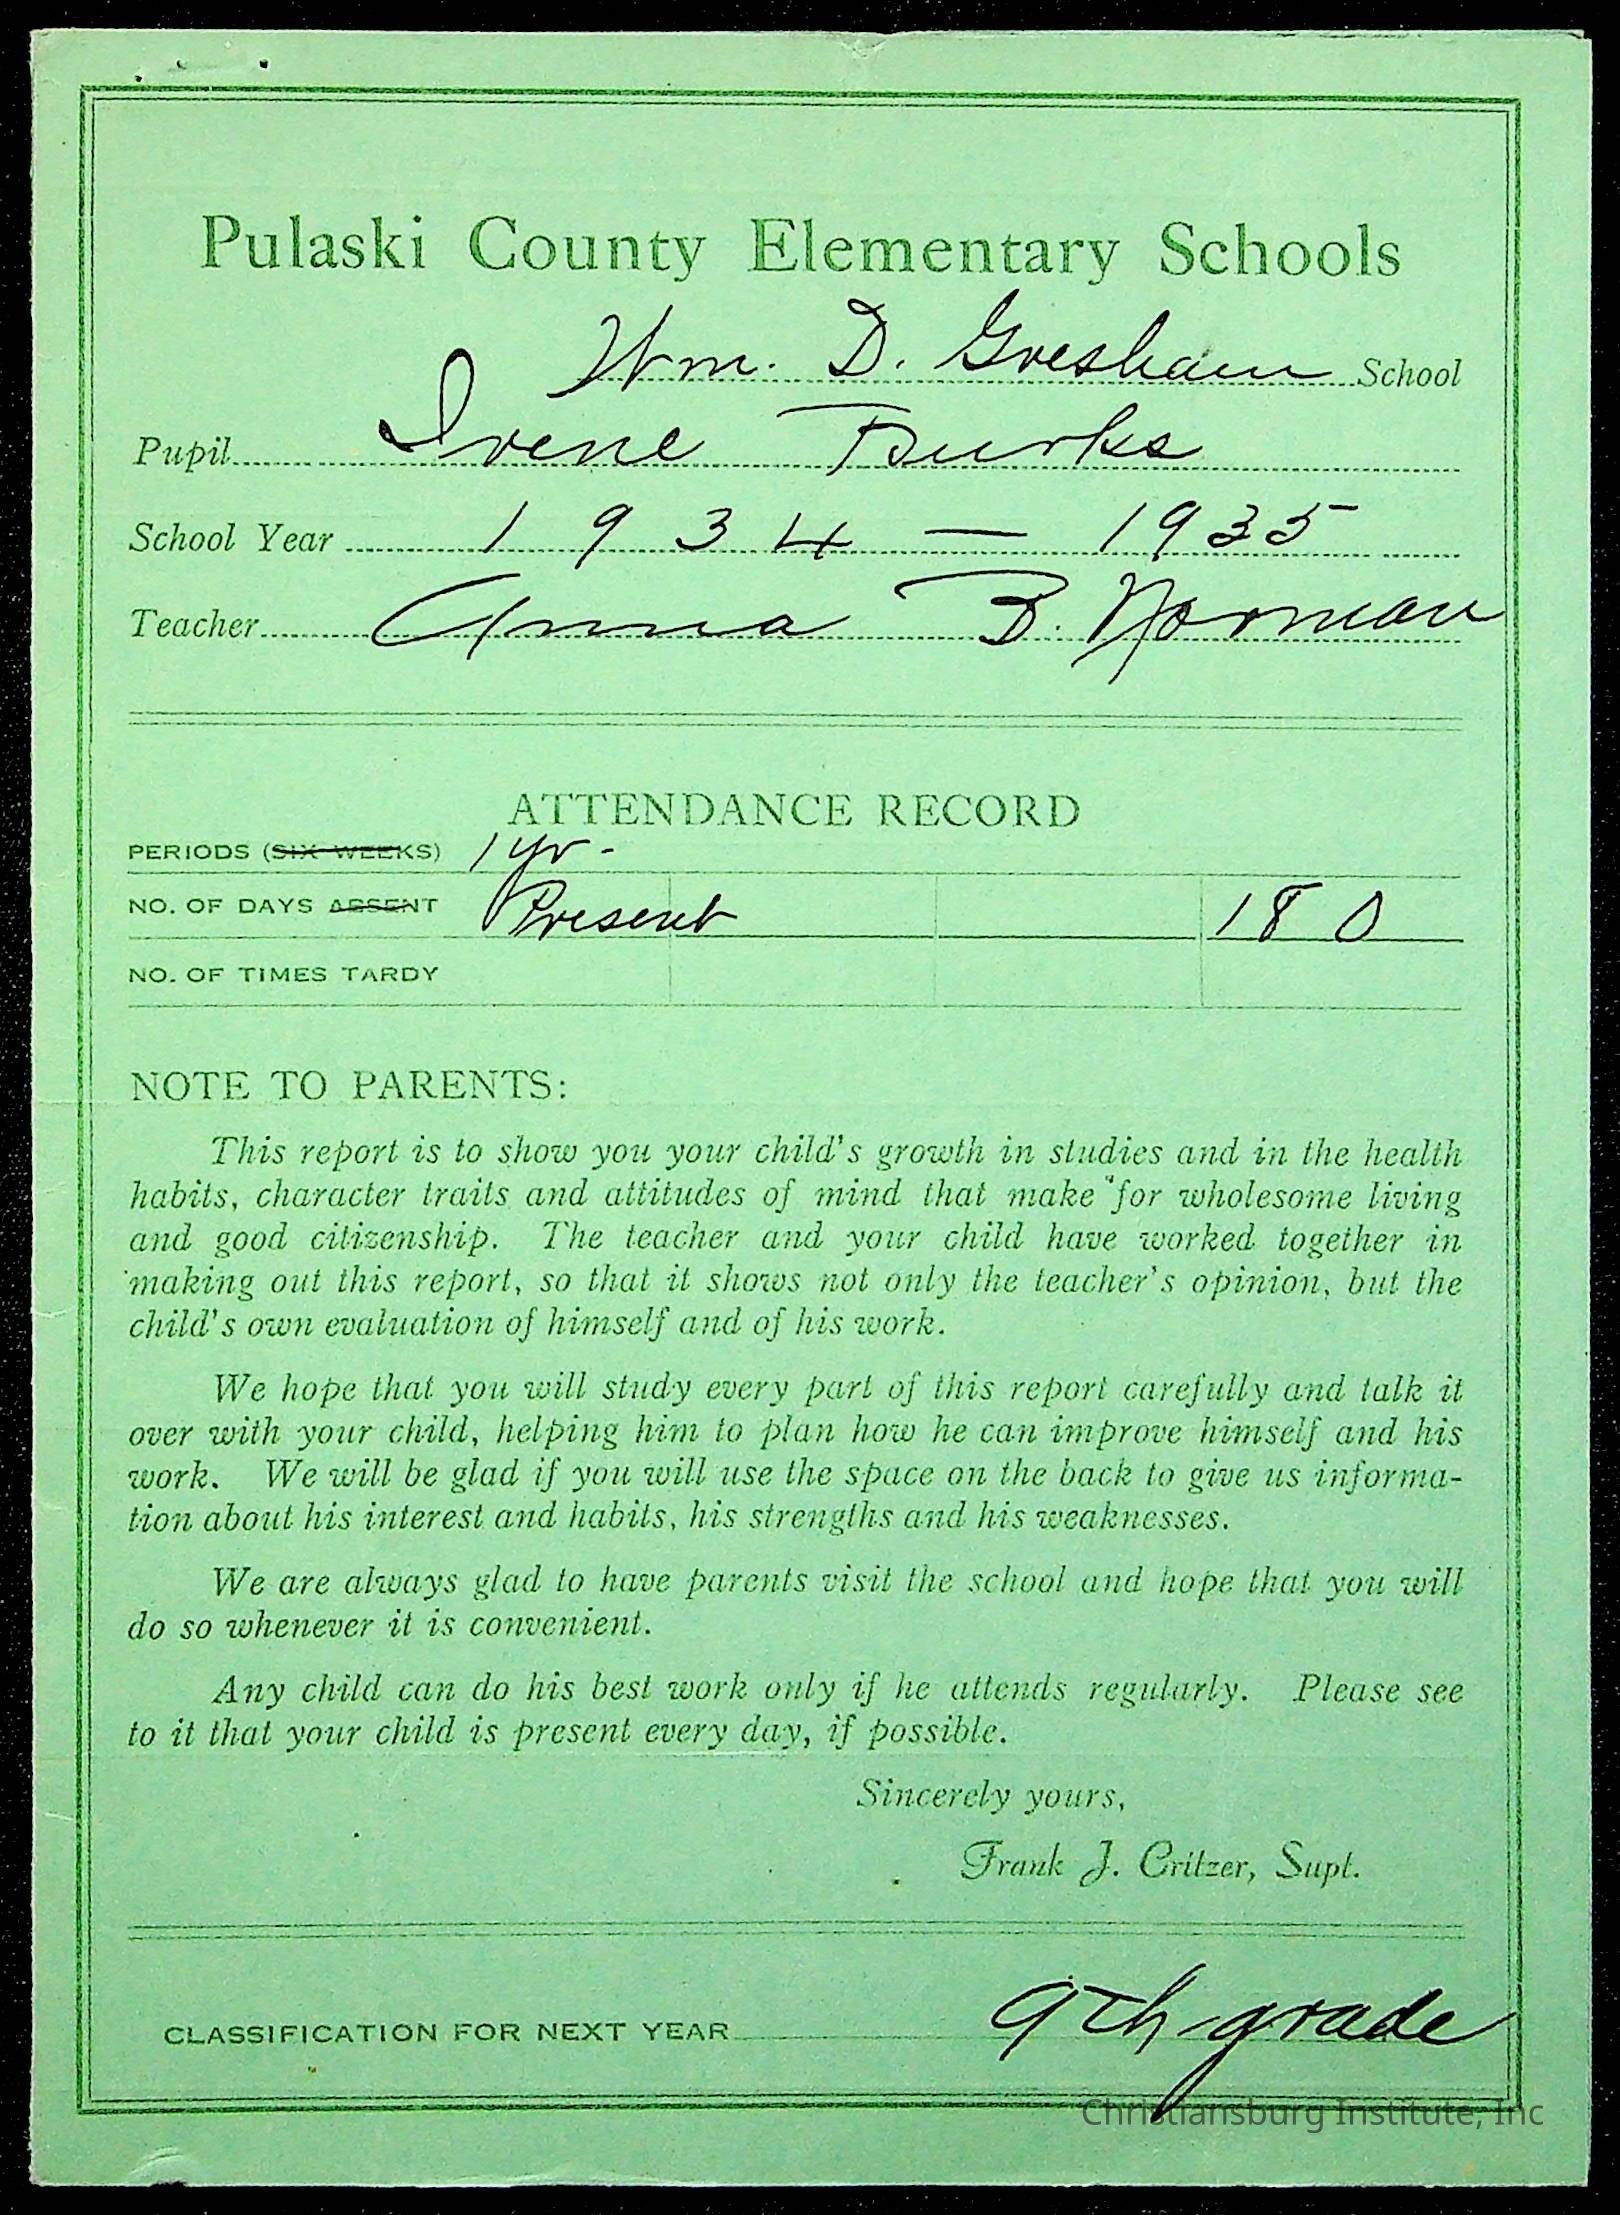 Pulaski County Elementary Schools
Wm. D. Gresham School
Pupil Irene Burks
School Year 1934 — 1935
Teacher Anna B. Norman
ATTENDANCE RECORD
PERIODS (SIX WEEKS) 1 yr-
NO. OF DAYS ABSENT Present 180
NO. OF TIMES TARDY
NOTE TO PARENTS:
This report is to show you your child's growth in studies and in the health
habits, character traits and attitudes of mind that make for wholesome living
and good citizenship. The teacher and your child have worked together in
making out this report, so that it shows not only the teacher's opinion, but the
child's own evaluation of himself and of his work.
We hope that you will study every part of this report carefully and talk it
over with your child, helping him to plan how he can improve himself and his
work. We will be glad if you will use the space on the back to give us informa-
tion about his interest and habits, his strengths and his weaknesses.
We are always glad to have parents visit the school and hope that you will
do so whenever it is convenient.
Any child can do his best work only if he attends regularly. Please see
to it that your child is present every day, if possible.
Sincerely yours,
Frank J. Critzer, Supt.
CLASSIFICATION FOR NEXT YEAR 9th-grade
Christiansburg Institute, Inc